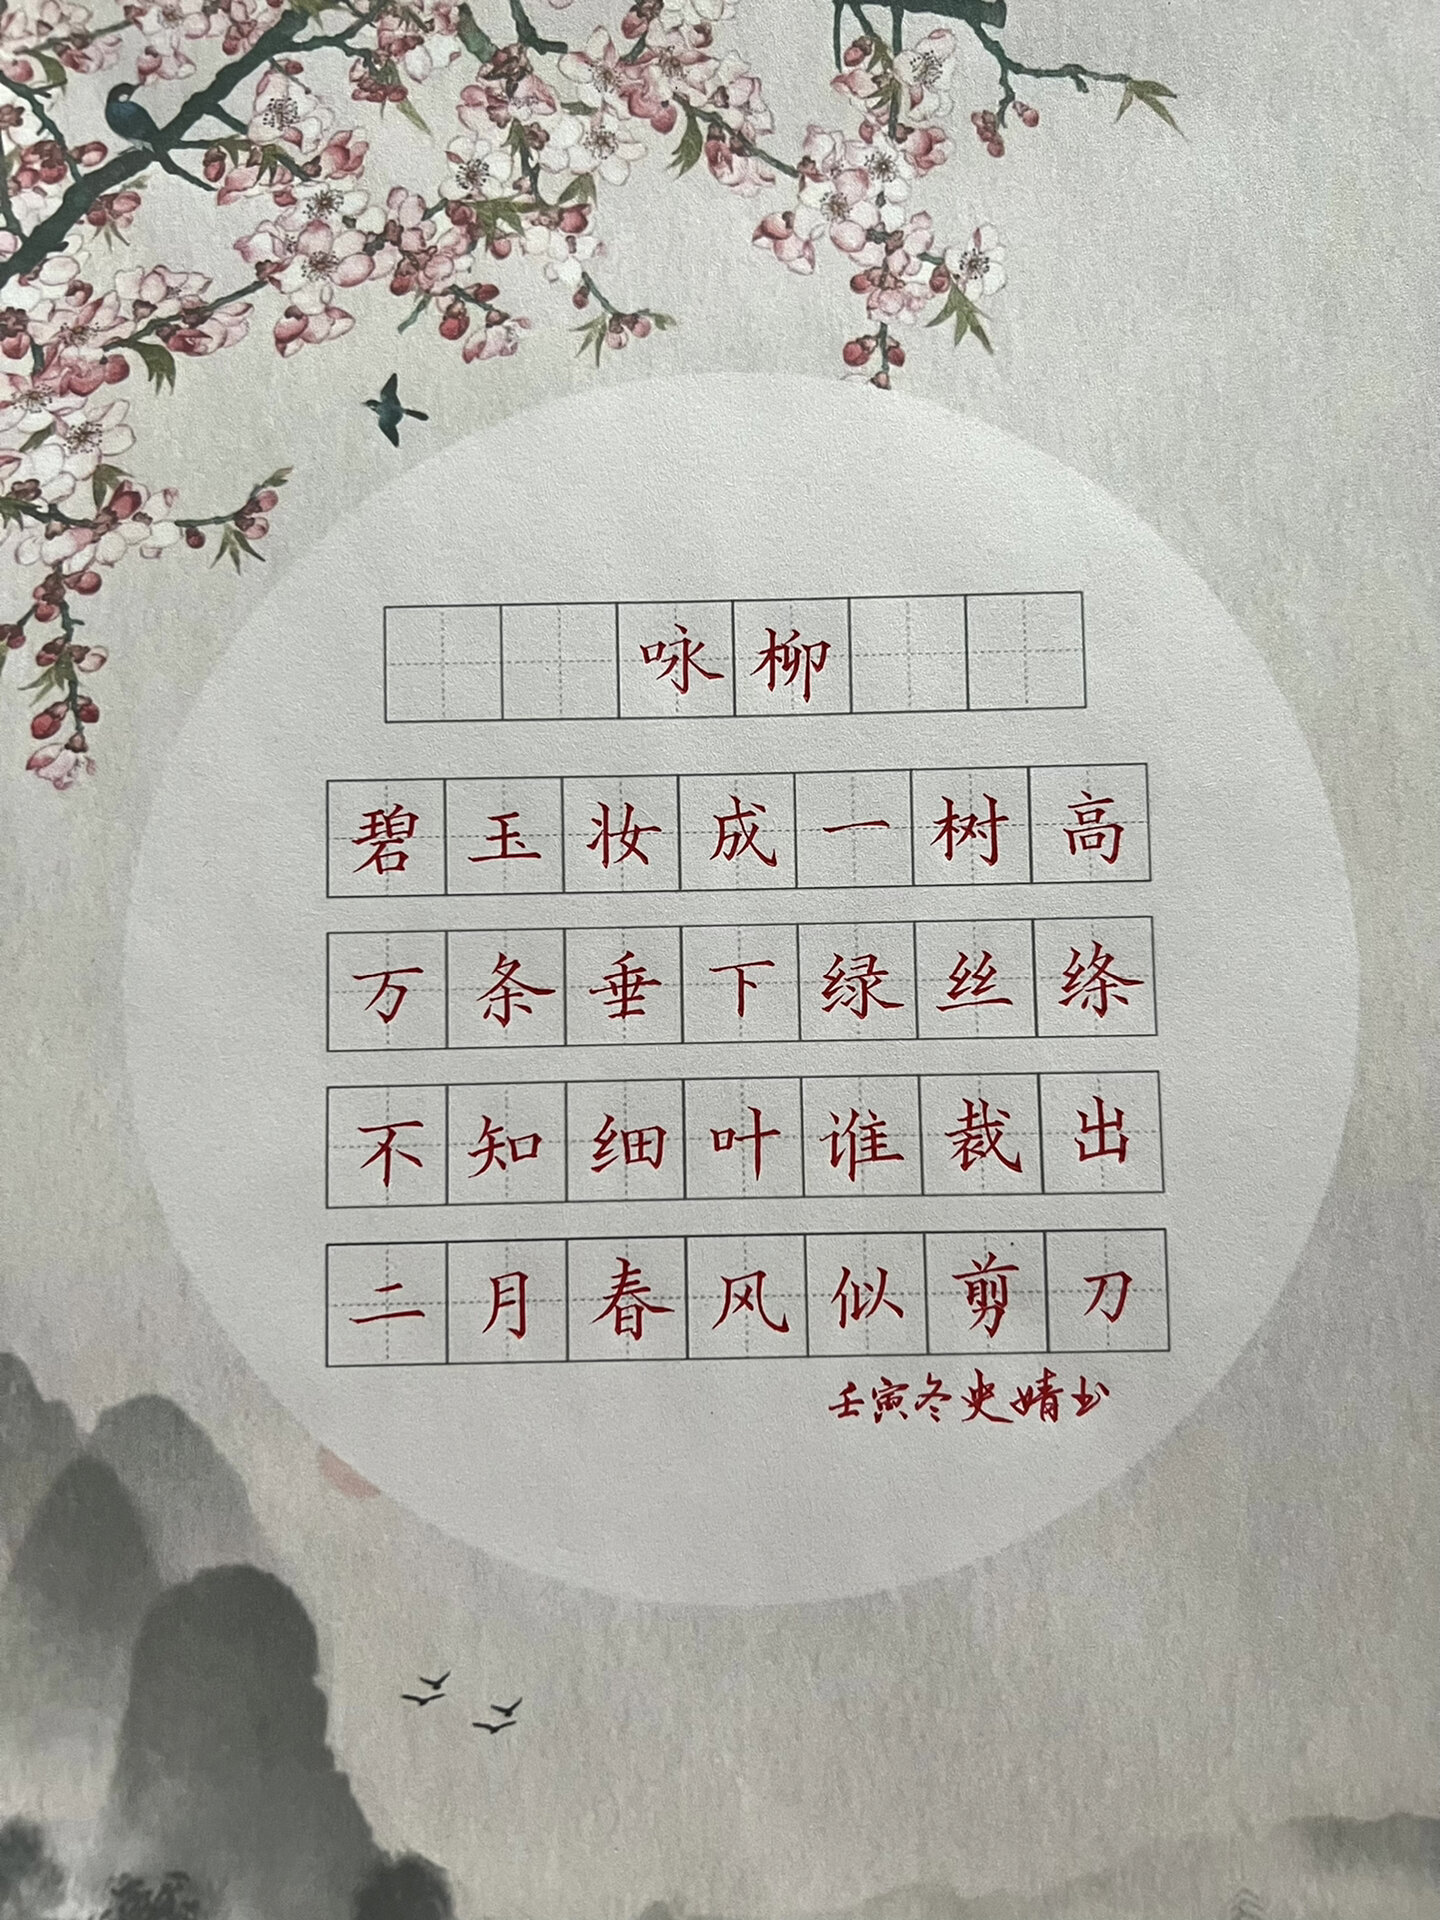 咏柳
碧玉妆成一树高
万条垂下绿丝绦
不知细叶谁裁出
二月春风似剪刀
壬寅冬史婧书